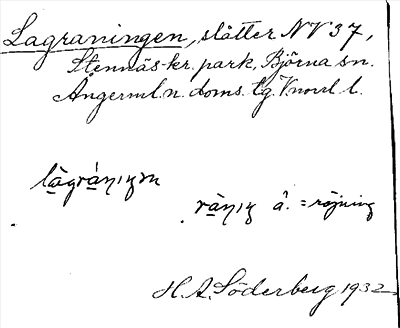 Lagraningen, slåtter NV 37,
Stennäs kr. park, Björna sn.
Ångerml. n. doms. lg. V. norrl. l.
là̱grá̱nɪŋm
rà̱nɪŋ â. = röjning
H. A. Söderberg 1932